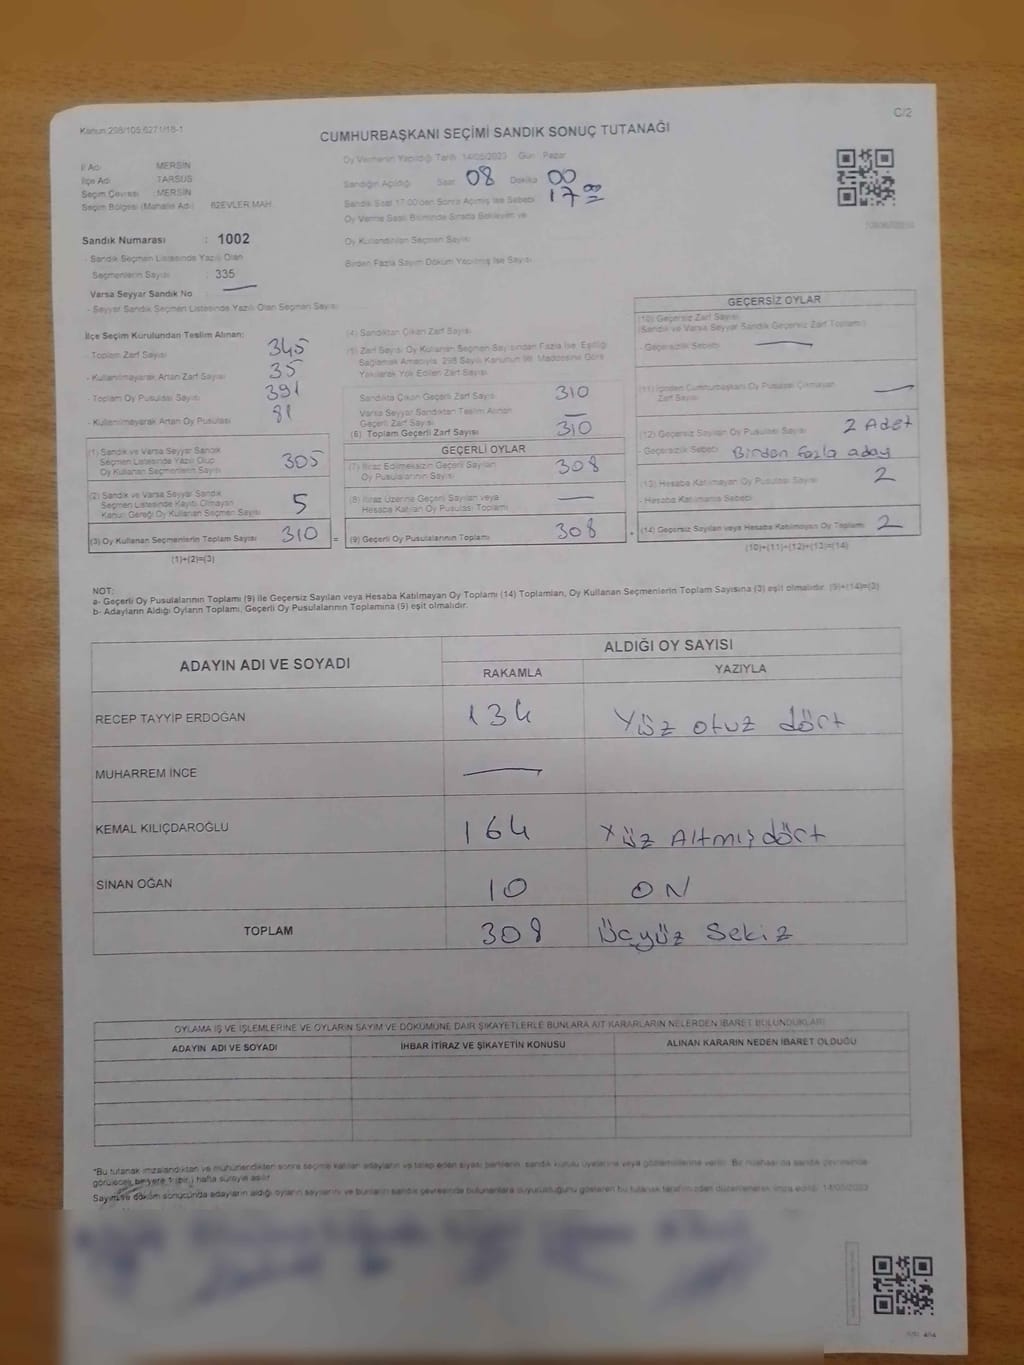 Kanun 298/105,6271/18-1
C/2
CUMHURBAŞKANI SEÇİMİ SANDIK SONUÇ TUTANAĞI
İl Adı : MERSİN
İlçe Adı : TARSUS
Seçim Çevresi : MERSİN
Seçim Bölgesi (Mahalle Adı) : 82EVLER MAH.
Sandık Numarası : 1002
- Sandık Seçmen Listesinde Yazılı Olan
Seçmenlerin Sayısı : 335
Varsa Seyyar Sandık No
- Seyyar Sandık Seçmen Listesinde Yazılı Olan Seçmen Sayısı
Oy Vermenin Yapıldığı Tarih 14/05/2023 Gün : Pazar
Sandığın Açıldığı Saat 08 Dakika 00
Sandık Saat 17:00'den Sonra Açılmış İse Sebebi 17 00
Oy Verme Saati Bitiminde Sırada Bekleyen ve
Oy Kullandırılan Seçmen Sayısı
Birden Fazla Sayım Döküm Yapılmış İse Sayısı
İlçe Seçim Kurulundan Teslim Alınan:
- Toplam Zarf Sayısı 345
- Kullanılmayarak Artan Zarf Sayısı 35
- Toplam Oy Pusulası Sayısı 391
- Kullanılmayarak Artan Oy Pusulası 81
(1) Sandık ve Varsa Seyyar Sandık
Seçmen Listesinde Yazılı Olup
Oy Kullanan Seçmenlerin Sayısı 305
(2) Sandık ve Varsa Seyyar Sandık
Seçmen Listesinde Kayıtlı Olmayan
Kanun Gereği Oy Kullanan Seçmen Sayısı 5
(3) Oy Kullanan Seçmenlerin Toplam Sayısı 310 =
(1)+(2)=(3)
(4) Sandıktan Çıkan Zarf Sayısı
(5) Zarf Sayısı Oy Kullanan Seçmen Sayısından Fazla İse, Eşitliği
Sağlamak Amacıyla, 298 Sayılı Kanunun 98. Maddesine Göre
Yakılarak Yok Edilen Zarf Sayısı
Sandıkta Çıkan Geçerli Zarf Sayısı 310
Varsa Seyyar Sandıktan Teslim Alınan
Geçerli Zarf Sayısı —
(6) Toplam Geçerli Zarf Sayısı 310
GEÇERLİ OYLAR
(7) İtiraz Edilmeksizin Geçerli Sayılan
Oy Pusulalarının Sayısı 308
(8) İtiraz Üzerine Geçerli Sayılan veya
Hesaba Katılan Oy Pusulası Toplamı —
(9) Geçerli Oy Pusulalarının Toplamı 308 +
GEÇERSİZ OYLAR
(10) Geçersiz Zarf Sayısı
(Sandık ve Varsa Seyyar Sandık Geçersiz Zarf Toplamı)
- Geçersizlik Sebebi —
(11) İçinden Cumhurbaşkanı Oy Pusulası Çıkmayan
Zarf Sayısı —
(12) Geçersiz Sayılan Oy Pusulası Sayısı 2 Adet
- Geçersizlik Sebebi Birden fazla aday
(13) Hesaba Katılmayan Oy Pusulası Sayısı 2
- Hesaba Katılmama Sebebi
(14) Geçersiz Sayılan veya Hesaba Katılmayan Oy Toplamı 2
(10)+(11)+(12)+(13)=(14)
NOT:
a- Geçerli Oy Pusulalarının Toplamı (9) ile Geçersiz Sayılan veya Hesaba Katılmayan Oy Toplamı (14) Toplamları, Oy Kullanan Seçmenlerin Toplam Sayısına (3) eşit olmalıdır. (9)+(14)=(3)
b- Adayların Aldığı Oyların Toplamı, Geçerli Oy Pusulalarının Toplamına (9) eşit olmalıdır.
ADAYIN ADI VE SOYADI
ALDIĞI OY SAYISI
RAKAMLA YAZIYLA
RECEP TAYYİP ERDOĞAN 134 Yüz otuz dört
MUHARREM İNCE —
KEMAL KILIÇDAROĞLU 164 Yüz Altmış dört
SİNAN OĞAN 10 ON
TOPLAM 308 Üçyüz Sekiz
OYLAMA İŞ VE İŞLEMLERİNE VE OYLARIN SAYIM VE DÖKÜMÜNE DAİR ŞİKAYETLERLE BUNLARA AİT KARARLARIN NELERDEN İBARET BULUNDUKLARI
ADAYIN ADI VE SOYADI İHBAR İTİRAZ VE ŞİKAYETİN KONUSU ALINAN KARARIN NEDEN İBARET OLDUĞU
*Bu tutanak imzalandıktan ve mühürlendikten sonra seçime katılan adayların ve talep eden siyasi partilerin, sandık kurulu üyelerine veya gözlemcilerine verilir. Bir nüshası da sandık çevresinde
görülecek bir yere 1 (bir) hafta süreyle asılır.
Sayım ve döküm sonucunda adayların aldığı oyların sayılarını ve bunların sandık çevresinde bulunanlara duyurulduğunu gösteren bu tutanak tarafımızdan düzenlenerek imza edildi. 14/05/2023